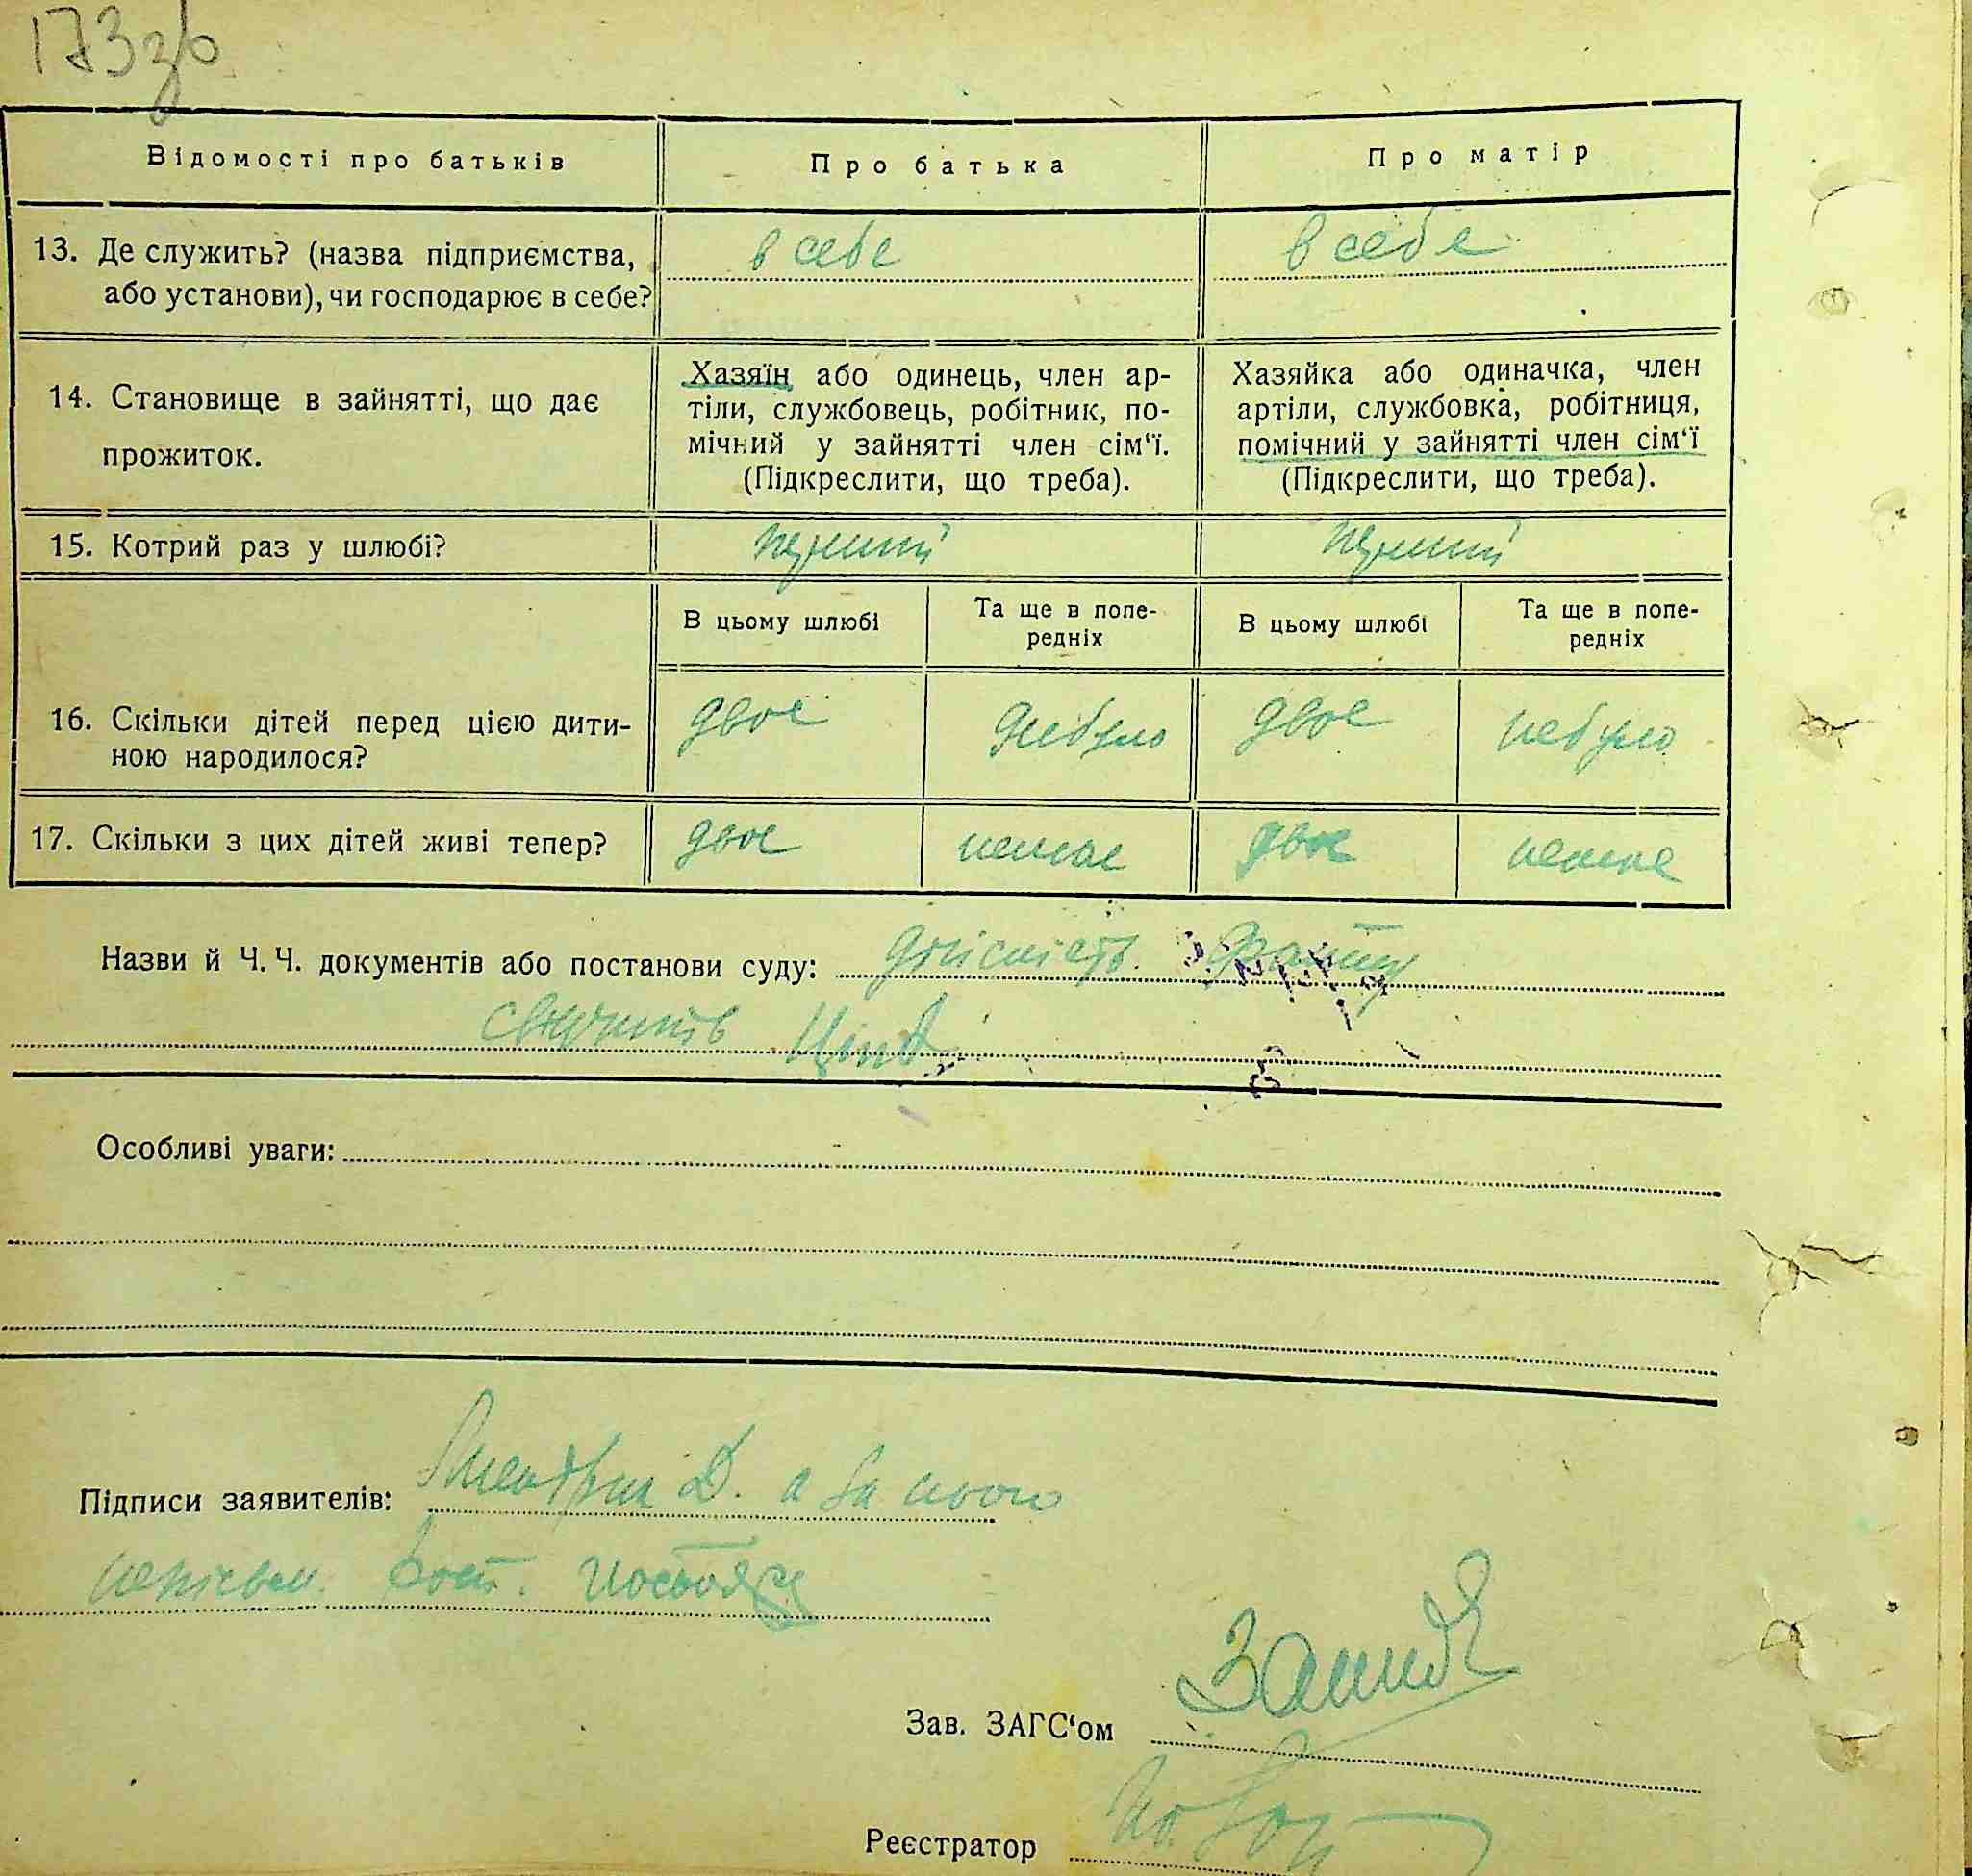 173зв
Відомості про батьків
Про батька
Про матір
13. Де служить? (назва підприємства,
або установи), чи господарює в себе?
в себе
в себе
14. Становище в зайнятті, що дає
прожиток.
Хазяїн або одинець, член ар-
тіли, службовець, робітник, по-
мічний у зайнятті член сім‘ї.
(Підкреслити, що треба).
Хазяйка або одиначка, член
артіли, службовка, робітниця,
помічний у зайнятті член сім‘ї
(Підкреслити, що треба).
15. Котрий раз у шлюбі?
перший
перший
В цьому шлюбі
Та ще в попе-
редніх
В цьому шлюбі
Та ще в попе-
редніх
16. Скільки дітей перед цією дити-
ною народилося?
двоє
небуло
двоє
небуло
17. Скільки з цих дітей живі тепер?
двоє
немає
двоє
немає
Назви й Ч. Ч. документів або постанови суду: дійсність факту
свідчить
Особливі уваги:
Підписи заявителів: Д. а за його
неписьм.
Зав. ЗАГС‘ом
Реєстратор